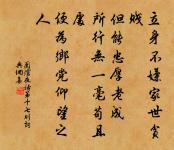 立身不嫌家世貧
賤
但能忠厚老成
所行無一毫苟且
處
便為鄉黨仰望之
人
圍爐夜話第十七則